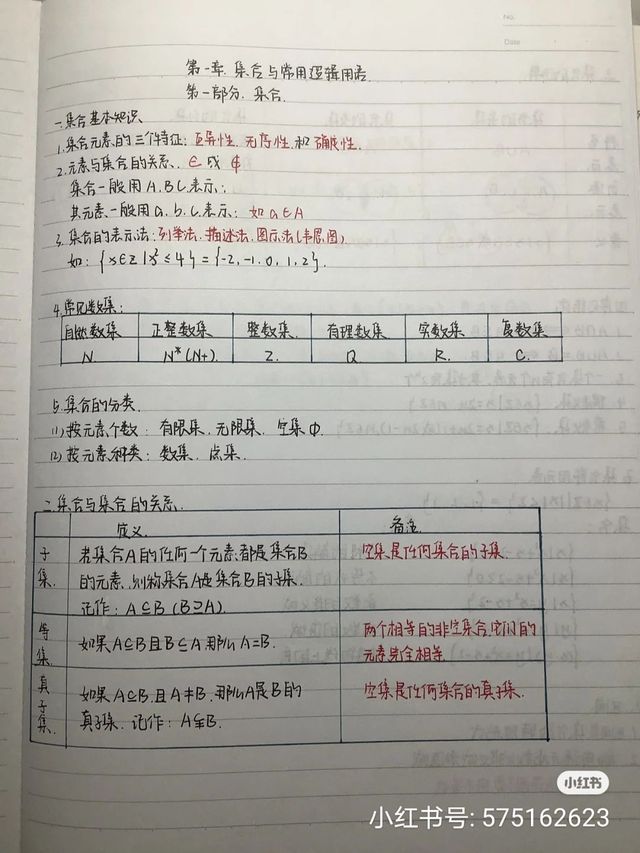 No.
Date
第一章.集合与常用逻辑用语
第一部分.集合.
一.集合基本知识、
1.集合元素的三个特征：互异性、无序性、和确定性.
2.元素与集合的关系.∈或∉
集合一般用A.B.C表示.;
其元素一般用a.b.c表示；如a∈A
3.集合的表示法：列举法.描述法.图示法(韦恩图)
如：{x∈Z|x²≤4}={-2,-1.0,1,2}.
4.常见数集：
自然数集 正整数集 整数集 有理数集 实数集 复数集
N N*(N+). Z. Q R. C.
5.集合的分类.
(1)按元素个数：有限集.无限集、空集Φ.
(2)按元素种类：数集.点集.
二.集合与集合的关系.
定义. 备注.
子集. 若集合A的任何一个元素都是集合B 空集是任何集合的子集.
的元素.则称集合A是集合B的子集.
记作：A⊆B(B⊇A).
等集. 如果A⊆B且B⊆A.那么A=B. 两个相等的非空集合.它们的
元素完全相等
真子集. 如果A⊆B.且A≠B.那么A是B的 空集是任何集合的真子集.
真子集.记作：A⫋B.
小红书
小红书号: 575162623